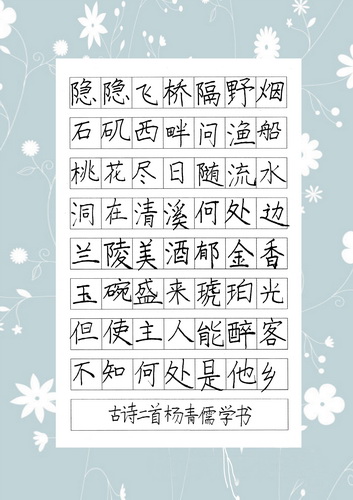 隐隐飞桥隔野烟
石矶西畔问渔船
桃花尽日随流水
洞在清溪何处边
兰陵美酒郁金香
玉碗盛来琥珀光
但使主人能醉客
不知何处是他乡
古诗二首杨青儒学书